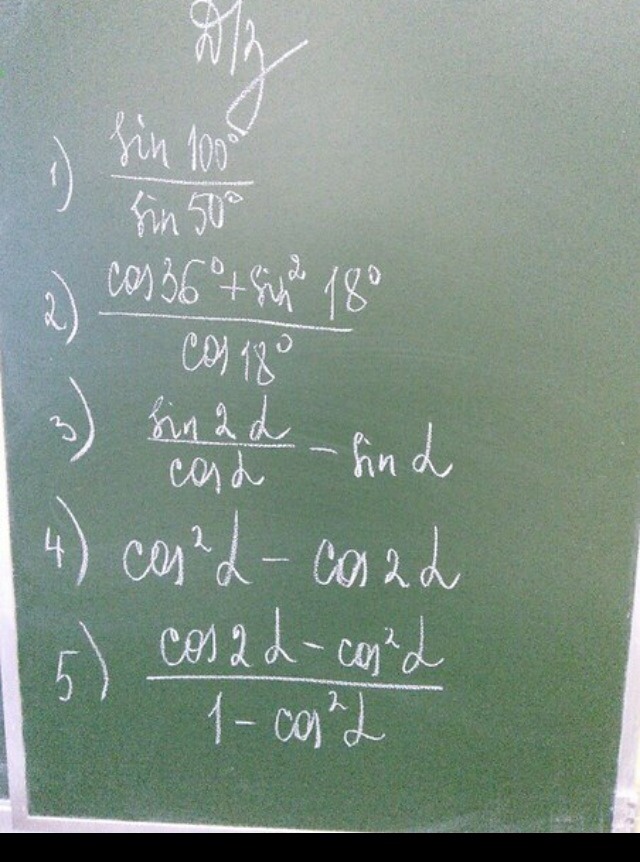 Д/з
1) sin 100° / sin 50°
2) cos 36° + sin² 18° / cos 18°
3) sin 2α / cos α − sin α
4) cos² α − cos 2α
5) cos 2α − cos² α / 1 − cos² α